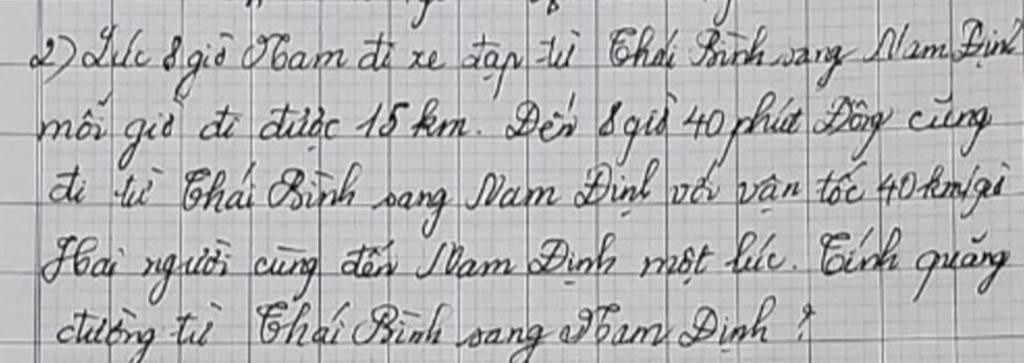 2) Lúc 8 giờ Nam đi xe đạp từ Thái Bình sang Nam Định
mỗi giờ đi được 15 km. Đến 8 giờ 40 phút Đông cũng
đi từ Thái Bình sang Nam Định với vận tốc 40 km/giờ
Hai người cùng đến Nam Định một lúc. Tính quãng
đường từ Thái Bình sang Nam Định ?